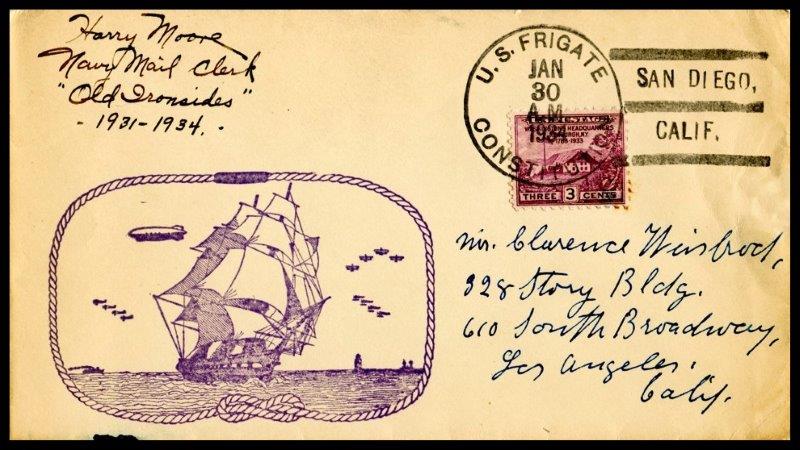 Harry Moore
Navy Mail Clerk
"Old Ironsides"
- 1931-1934. -
U.S. FRIGATE
JAN
30
A.M.
1934
SAN DIEGO,
CALIF.
HEADQUARTERS
1783-1933
THREE 3 CENTS
Mr. Clarence
328 Story Bldg.
610 South Broadway,
Los Angeles.
Calif.